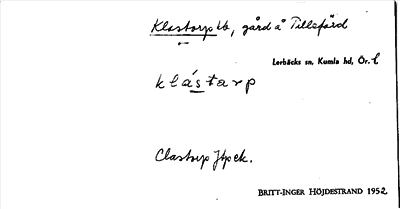 Klastorp Lb, gård å Tillsfärd
Lerbäcks sn, Kumla hd, Ör. l
klástarp
Clastorp Jb ek.
BRITT-INGER HÖJDESTRAND 1952